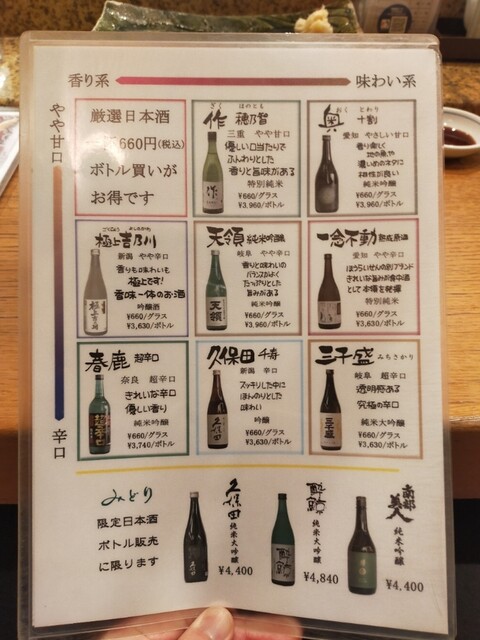 香り系
味わい系
やや甘口
辛口
厳選日本酒
660円(税込)
ボトル買いが
お得です
ざく ほのとも
作 穂乃智
三重 やや甘口
優しい口当たりで
ふんわりとした
香りと旨味がある
特別純米
¥660/グラス
¥3,960/ボトル
おく とわり
奥 十割
愛知 やさしい甘口
香り楽しく
地の魚や
濃いめのネタに
相性が良い
純米吟醸
¥660/グラス
¥3,960/ボトル
極上吉乃川
新潟 やや辛口
香りも味わいも
極上です!
香味一体のお酒
吟醸酒
¥660/グラス
¥3,630/ボトル
天領 純米吟醸
岐阜 やや辛口
香りと味わいの
バランスがよく
たっぷりとした
旨みがある
純米吟醸
¥660/グラス
¥3,960/ボトル
一念不動 熟成原酒
愛知 やや辛口
ほうらいせんの別ブランド
きれいな旨みが食中酒
として本領を発揮
特別純米
¥660/グラス
¥3,960/ボトル
春鹿 超辛口
奈良 超辛口
きれいな辛口
優しい香り
純米吟醸
¥660/グラス
¥3,740/ボトル
久保田 千寿
新潟 辛口
スッキリした中に
ほんのりとした
味わい
吟醸
¥660/グラス
¥3,630/ボトル
三千盛 みちさかり
岐阜 超辛口
透明感ある
究極の辛口
純米大吟醸
¥660/グラス
¥3,630/ボトル
みどり
限定日本酒
ボトル販売
に限ります
久保田
純米大吟醸
¥4,400
酔鯨
純米大吟醸
¥4,840
南部美人
純米吟醸
¥4,400